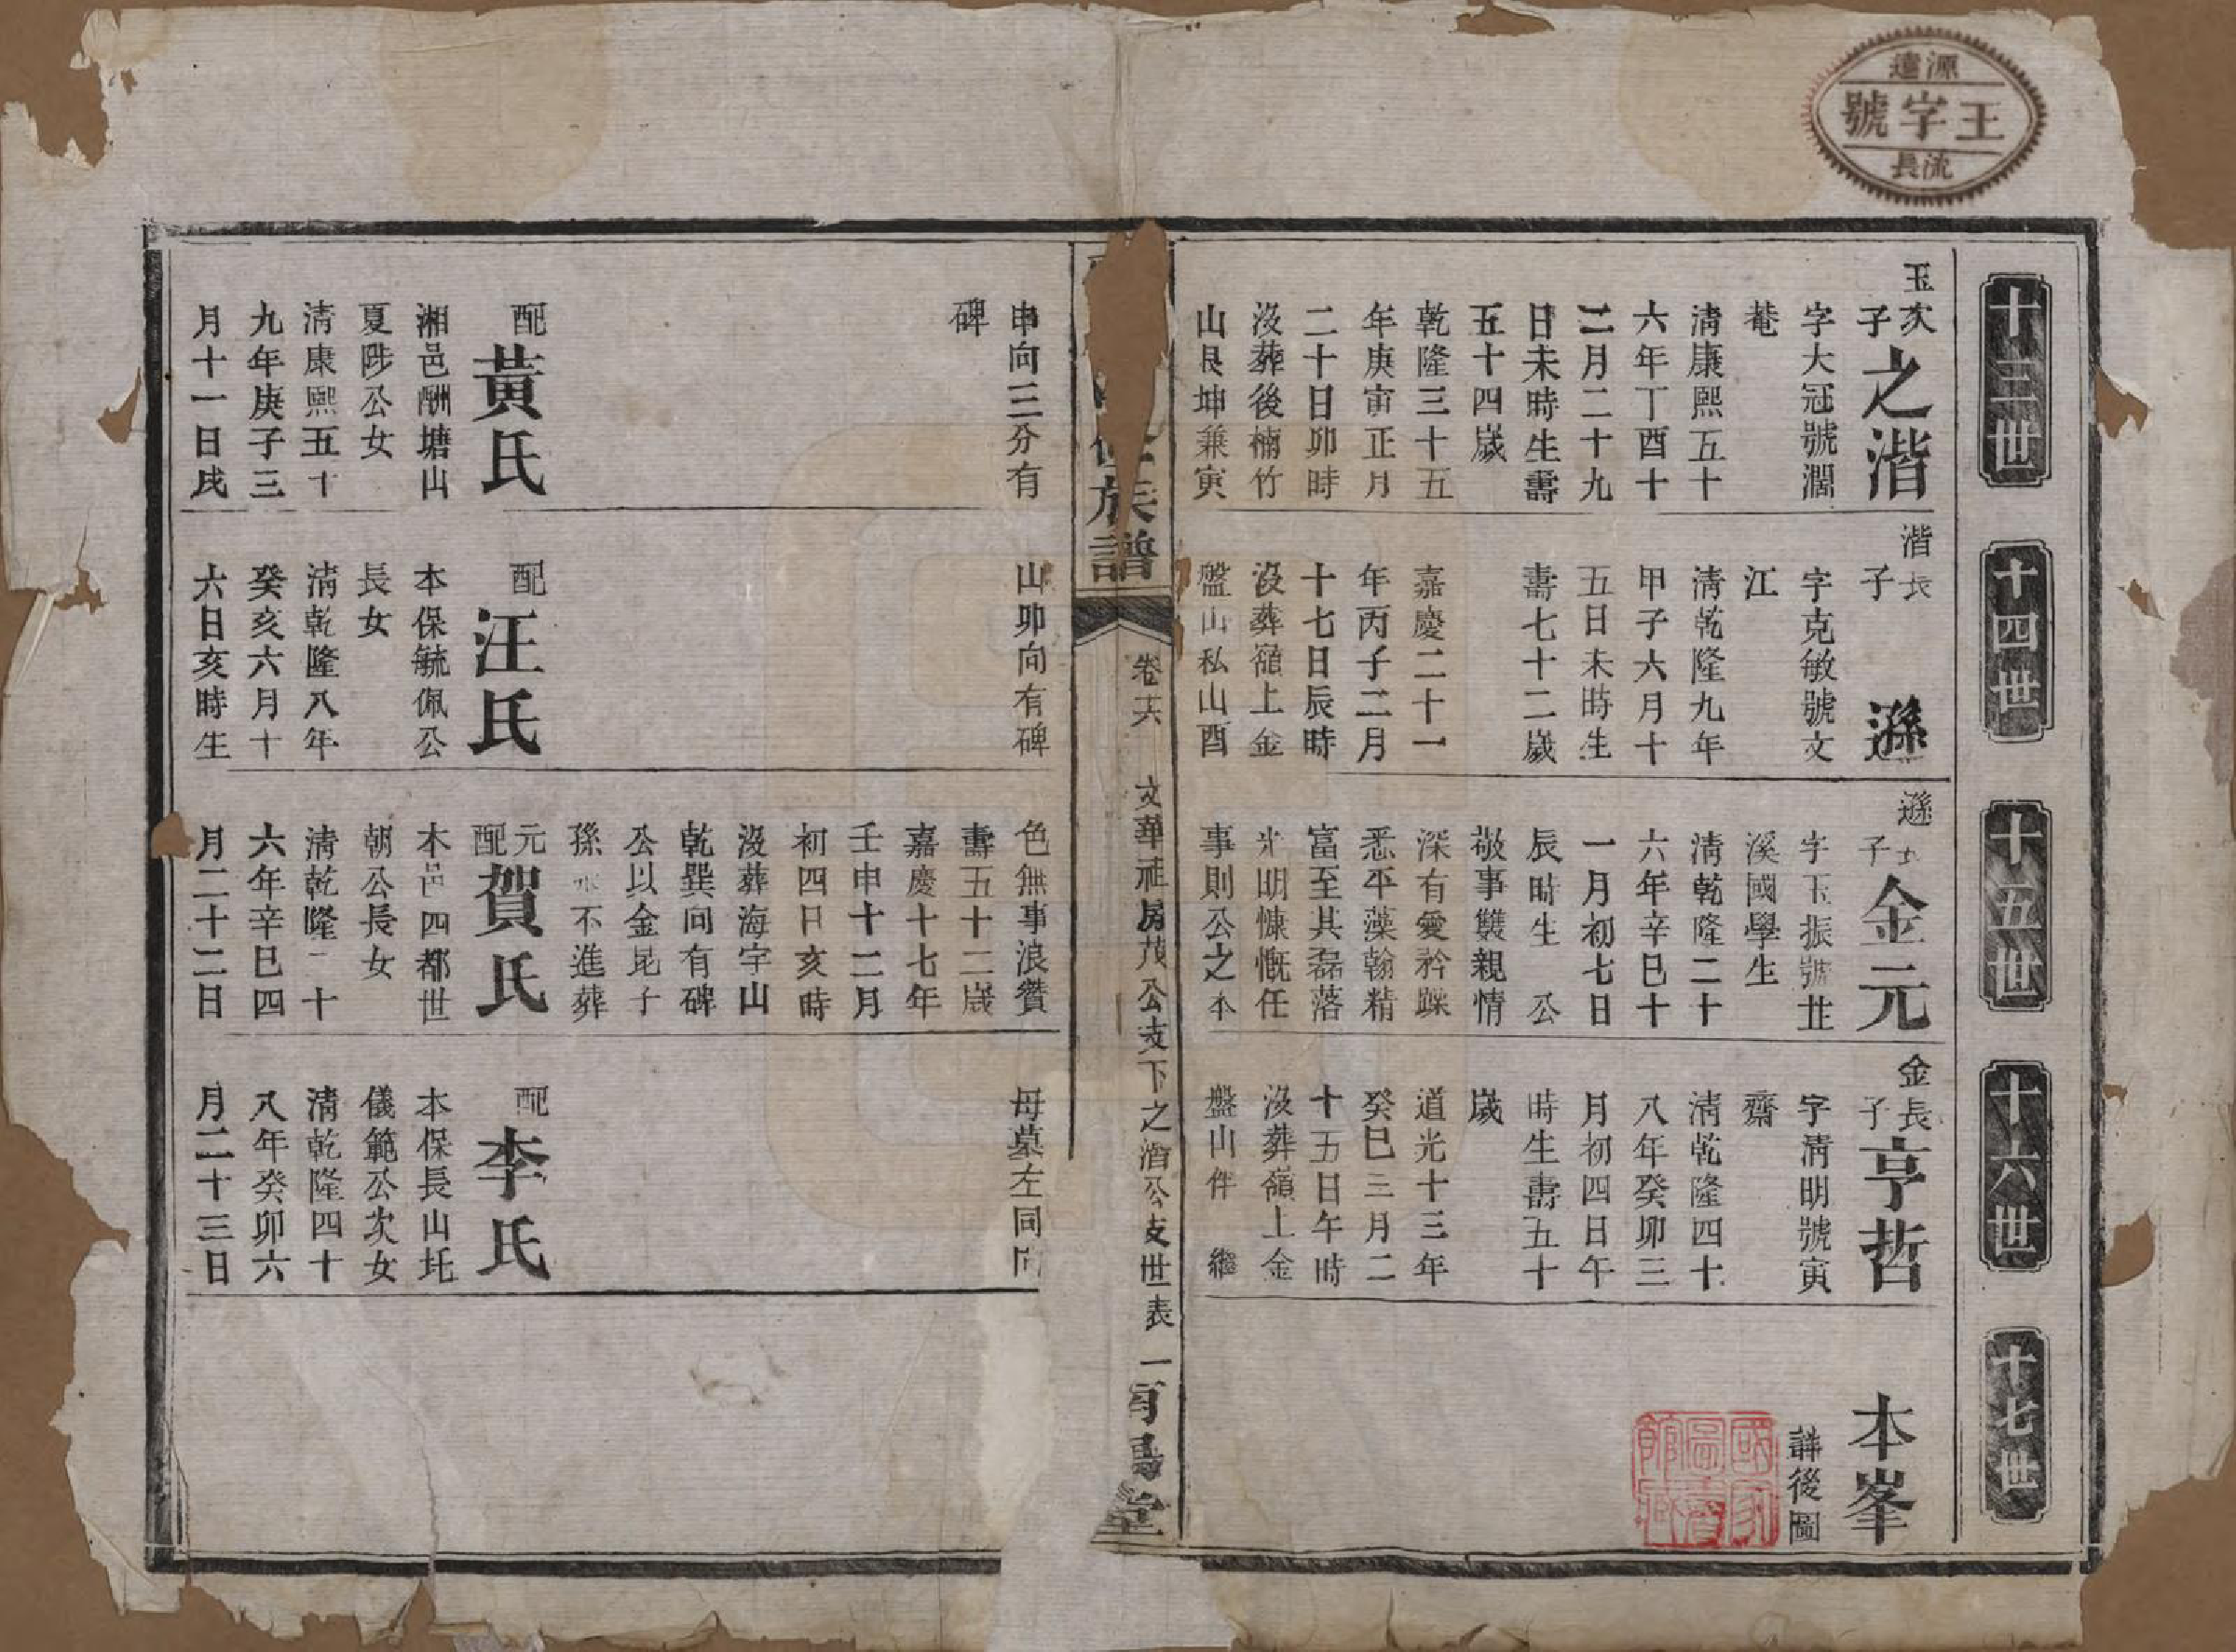 源遠
王字號
流長
十三世
十四世
十五世
十六世
十七世
玉次子之湝
字大冠號濶
菴
清康熙五十
六年丁酉十
二月二十九
日未時生壽
五十四歲
乾隆三十五
年庚寅正月
二十日卯時
沒葬後楠竹
山艮坤兼寅
申向三分有
碑
配黃氏
湘邑酬塘山
夏陟公女
清康熙五十
九年庚子三
月十一日戌
湝長子遜
字克敏號文
江
清乾隆九年
甲子六月十
五日未時生
壽七十二歲
嘉慶二十一
年丙子二月
十七日辰時
沒葬嶺上金
盤山私山酉
山卯向有碑
配汪氏
本保毓佩公
長女
清乾隆八年
癸亥六月十
六日亥時生
遜長子金元
字玉振號芷
溪國學生
清乾隆二十
六年辛巳十
一月初七日
辰時生 公
敬事雙親情
深有愛矜躁
悉平藻翰精
富至其磊落
光明慷慨任
事則公之本
色無事浪贊
壽五十二歲
嘉慶十七年
壬申十二月
初四日亥時
沒葬海宇山
乾巽向有碑
公以金昆子
孫水不進葬
元配賀氏
本邑四都世
朝公長女
清乾隆二十
六年辛巳四
月二十二日
金長子亨哲
字清明號寅
齋
清乾隆四十
八年癸卯三
月初四日午
時生壽五十
歲
道光十三年
癸巳三月二
十五日午時
沒葬嶺上金
盤山件 繼
母墓左同向
配李氏
本保長山圫
儀範公次女
清乾隆四十
八年癸卯六
月二十三日
本峯
詳後圖
國家圖書館藏
修族譜
卷十六
文華祖房茂公支下之湝公支世表
一
堂